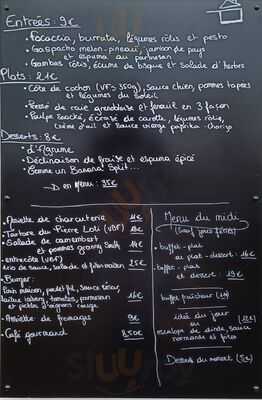 Entrées : 9€
• Focaccia, burrata, légumes rôtis et pesto
• Gaspacho melon-pineau, jambon de pays
et espuma au parmesan
• Gambas rôtis, écume de bisque et Salade d'herbes
Plats : 21€
• Côte de cochon (VF-350g), Sauce chien, pommes tapées
et légumes du Soleil
• Pressé de raie grenobloise et fenouil en 3 façon
• Poulpe Snacké, écrasé de carotte, légumes rôtis,
crème d'ail et Sauce vierge paprika-chorizo
Desserts : 8€
• d'Agrume
• Déclinaison de fraise et espuma épicé
• Comme un Banana Split...
en Menu : 35€
• Assiette de charcuterie 11€
• Tartare du Pierre Loti (VBF)
• Salade de camembert 14€
et pommes granny Smith
• entrecôte (VBF) 25€
, salade et frites maison
• Burger :
Pain maison, pastel fol, Sauce césar,
laitue iceberg, tomates, parmesan
et pickles d'oignons rouge 16€
• Assiette de fromages 9€
• Café gourmand 8,50€
Menu du midi
(Sauf jours fériés)
• buffet - plat
ou plat - dessert : 16€
• buffet - plat
et dessert : 19€
buffet fraîcheur
idée du jour
ou
escalope de dinde, sauce
normande et frites
Desserts du moment (5€)